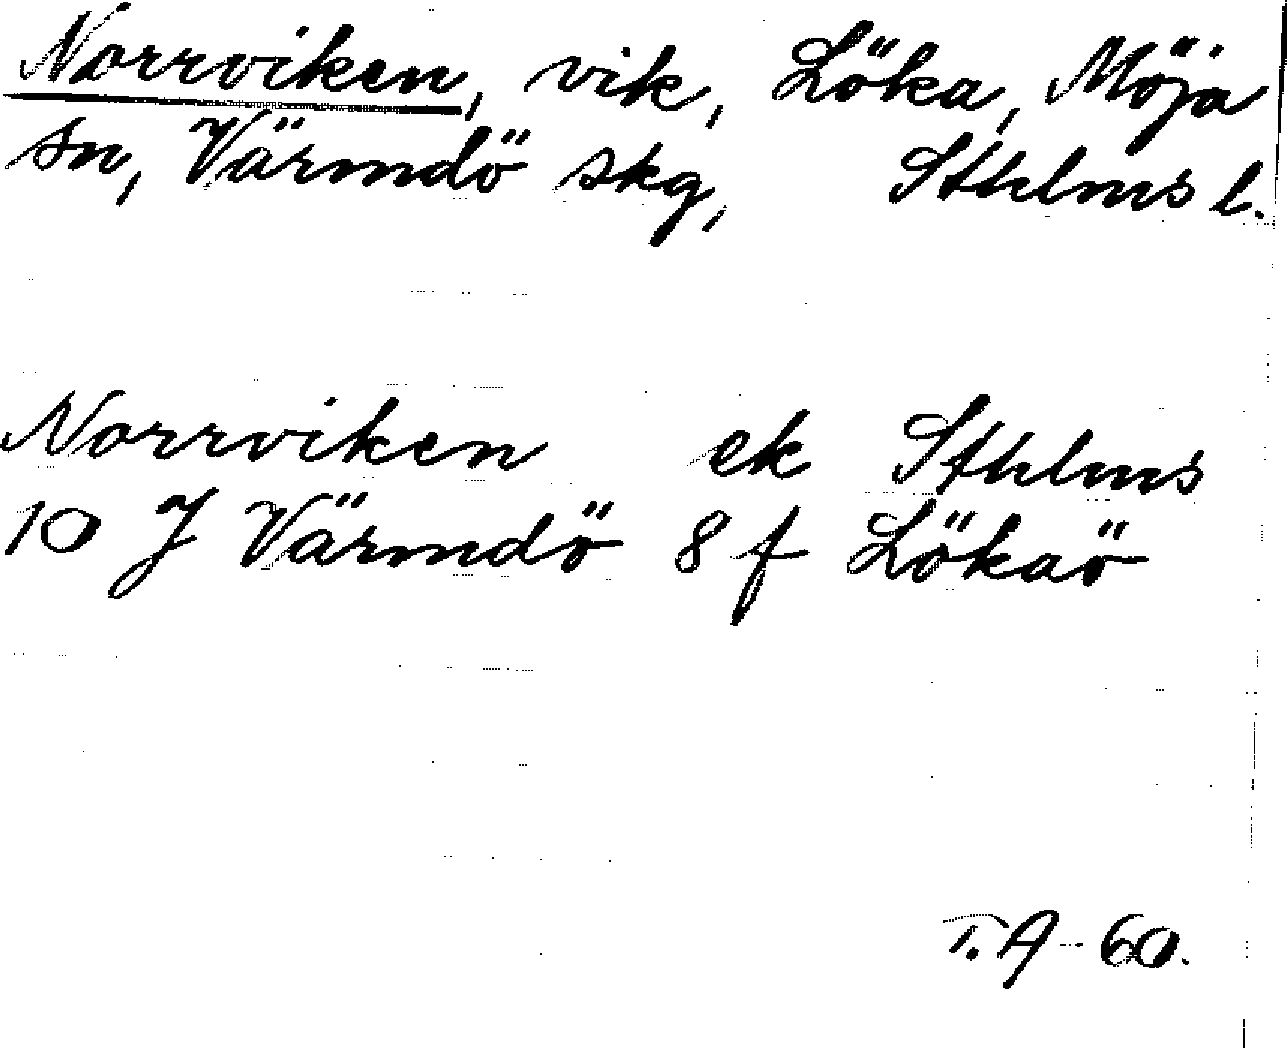 Norrviken, vik, Löka, Möja
sn, Värmdö skg, Sthlms l.
Norrviken ek Sthlms
10 J Värmdö 8 f Lökaö
T.A-60.